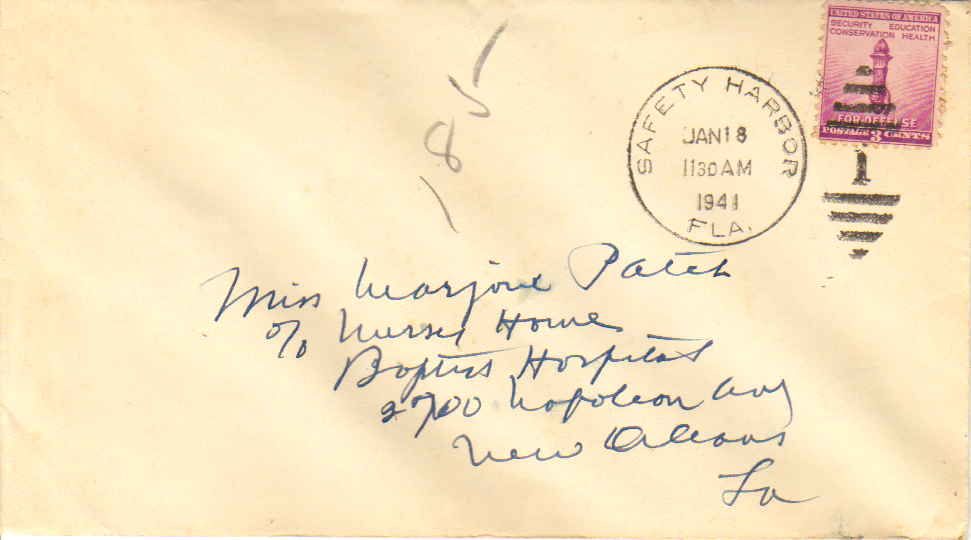 UNITED STATES OF AMERICA
SECURITY EDUCATION
CONSERVATION HEALTH
FOR DEFENSE
POSTAGE 3 CENTS
SAFETY HARBOR
JAN 18
1130 AM
1941
FLA.
1
185
Miss Marjorie Patch
c/o Nurses Home
Baptist Hospital
2700 Napoleon Ave
New Orleans
La